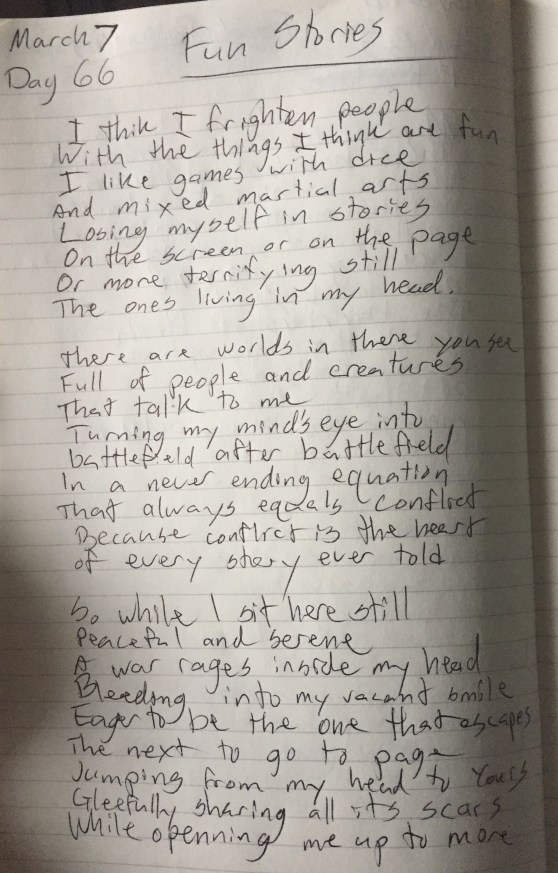 March 7
Fun Stories
Day 66
I thik I frighten people
With the things I think are fun
I like games with dice
And mixed martial arts
Losing myself in stories
On the screen or on the page
Or more terrifying still
The ones living in my head.
There are worlds in there you see
Full of people and creatures
That talk to me
Turning my mind's eye into
battlefield after battlefield
In a never ending equation
That always equals conflict
Because conflict is the heart
of every story ever told
So while I sit here still
Peaceful and serene
A war rages inside my head
Bleeding into my vacant smile
Eager to be the one that escapes
The next to go to page
Jumping from my head to Yours
Gleefully sharing all its scars
While openning me up to more